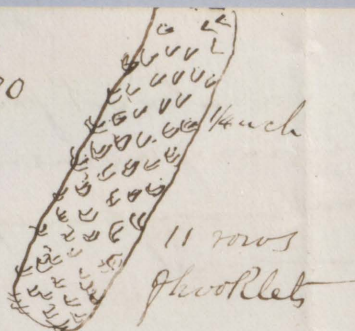 20
1/4 inch
11 rows
of hooklets